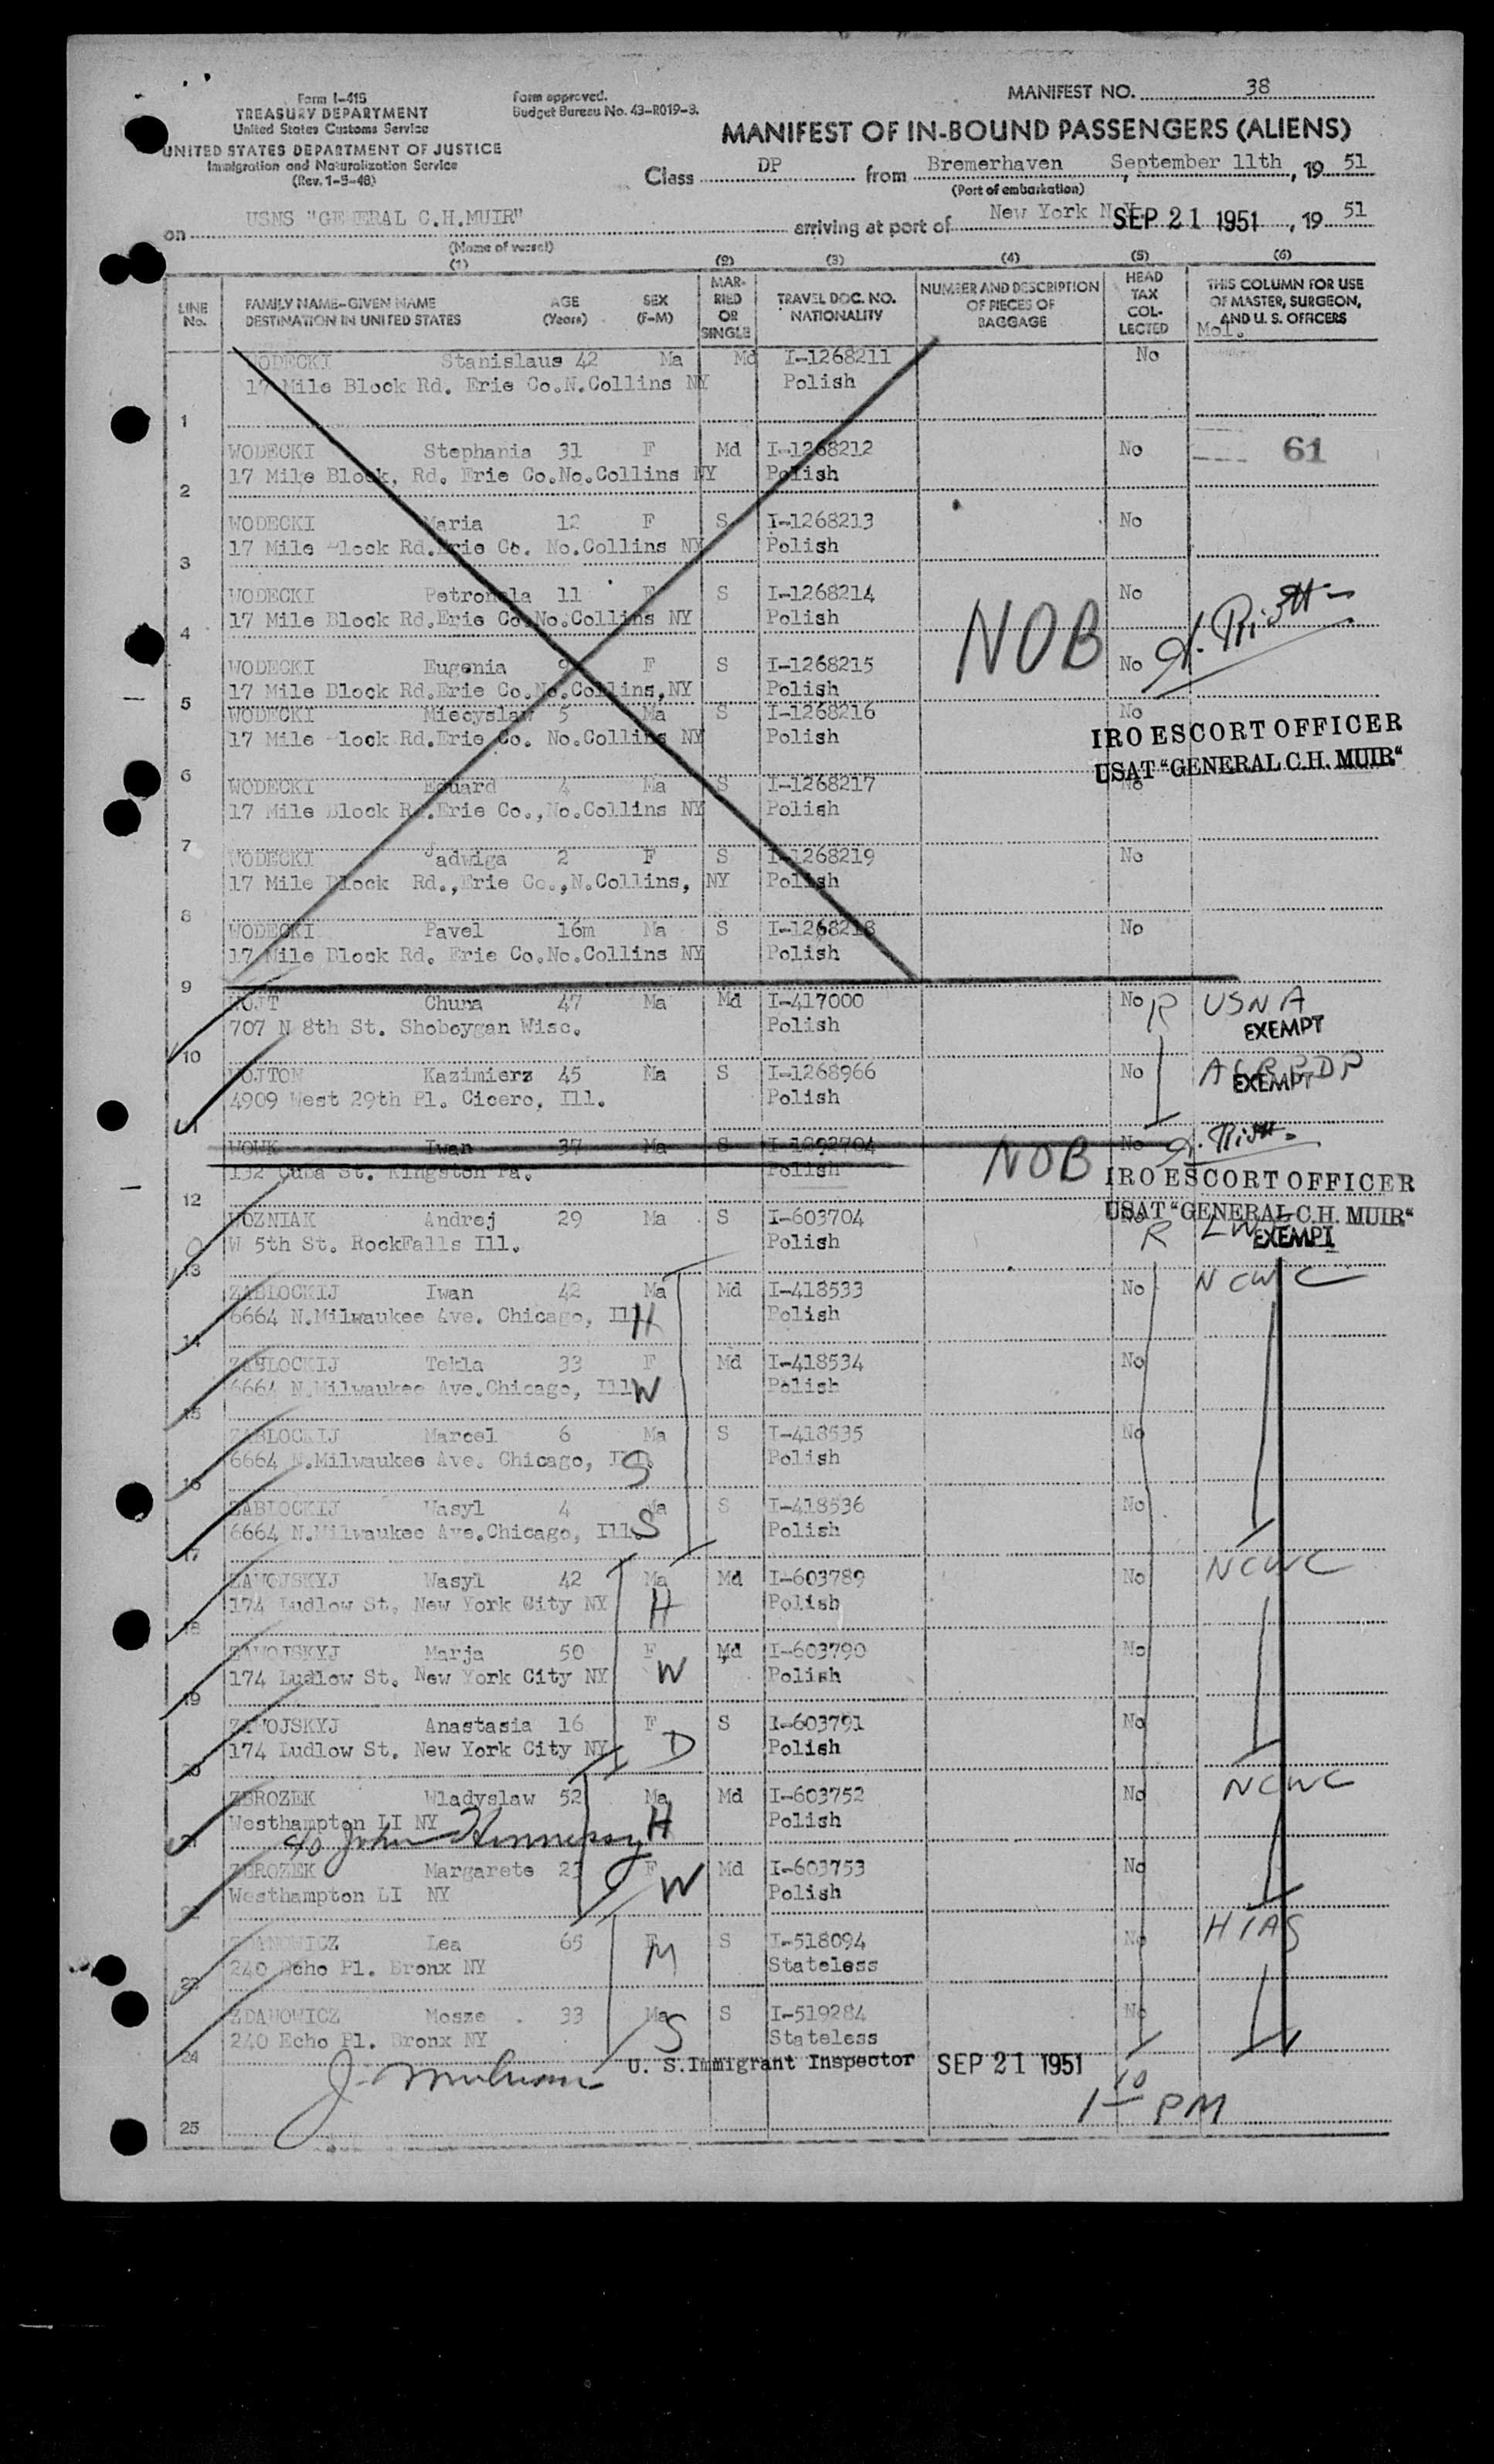 Form I-415
TREASURY DEPARTMENT
United States Customs Service
UNITED STATES DEPARTMENT OF JUSTICE
Immigration and Naturalization Service
(Rev. 1-5-48)
Form approved.
Budget Bureau No. 43-R019-3.
MANIFEST NO. 38
MANIFEST OF IN-BOUND PASSENGERS (ALIENS)
Class DP from Bremerhaven, September 11th, 19 51
(Port of embarkation)
on USNS "GENERAL C.H.MUIR" arriving at port of New York N.Y. SEP 21 1951, 19 51
(Name of vessel)
(1) (2) (3) (4) (5) (6)
LINE No. FAMILY NAME-GIVEN NAME DESTINATION IN UNITED STATES AGE (Years) SEX (F-M) MARRIED OR SINGLE TRAVEL DOC. NO. NATIONALITY NUMBER AND DESCRIPTION OF PIECES OF BAGGAGE HEAD TAX COLLECTED THIS COLUMN FOR USE OF MASTER, SURGEON, AND U. S. OFFICERS
Mol.
WODECKI Stanislaus 42 Ma Md I-1268211 No
17 Mile Block Rd. Erie Co.N.Collins NY Polish
1
WODECKI Stephania 31 F Md I-1268212 No 61
17 Mile Block, Rd. Erie Co.No.Collins NY Polish
2
WODECKI Maria 12 F S I-1268213 No
17 Mile lock Rd.Erie Co. No.Collins NY Polish
3
WODECKI Petronela 11 F S I-1268214 No
17 Mile Block Rd.Erie Co.No.Collins NY Polish
4
NOB
WODECKI Eugenia 9 F S I-1268215 No
17 Mile Block Rd.Erie Co.No.Collins,NY Polish
5
WODECKI Miecyslaw 5 Ma S I-1268216 No
17 Mile lock Rd.Erie Co. No.Collins NY Polish
IRO ESCORT OFFICER
USAT "GENERAL C.H. MUIR"
6
WODECKI Eduard 4 Ma S I-1268217 No
17 Mile Block Rd.Erie Co.,No.Collins NY Polish
7
WODECKI Jadwiga 2 F S I-1268219 No
17 Mile Block Rd.,Erie Co.,N.Collins, NY Polish
8
WODECKI Pavel 16m Ma S I-1268218 No
17 Mile Block Rd. Erie Co.No.Collins NY Polish
9
WOJT Chuma 47 Ma Md I-417000 No R USNA
707 N 8th St. Shoboygan Wisc. Polish EXEMPT
10
WOJTON Kazimierz 45 Ma S I-1268966 No
4909 West 29th Pl. Cicero, Ill. Polish EXEMPT
11
WOWK Iwan 37 Ma S I-1892704 NOB No
132 Cuba St. Kingston Pa. Polish
IRO ESCORT OFFICER
12
USAT "GENERAL C.H. MUIR"
WOZNIAK Andrej 29 Ma S I-603704 No
W 5th St. RockFalls Ill. Polish R EXEMPT
13
ZABLOCKIJ Iwan 42 Ma Md I-418533 No NCWC
6664 N.Milwaukee Ave. Chicago, Ill H Polish
14
ZABLOCKIJ Tekla 33 F Md I-418534 No
6664 N.Milwaukee Ave.Chicago, Ill W Polish
15
ZABLOCKIJ Marcel 6 Ma S I-418535 No
6664 N.Milwaukee Ave. Chicago, Ill. S Polish
16
ZABLOCKIJ Wasyl 4 Ma S I-418536 No
6664 N.Milwaukee Ave.Chicago, Ill. S Polish
17
ZAWOJSKYJ Wasyl 42 Ma Md I-603789 No NCWC
174 Ludlow St. New York City NY H Polish
18
ZAWOJSKYJ Marja 50 F Md I-603790 No
174 Ludlow St. New York City NY W Polish
19
ZAWOJSKYJ Anastasia 16 F S I-603791 No
174 Ludlow St. New York City NY D Polish
20
ZBROZEK Wladyslaw 52 Ma Md I-603752 No NCWC
Westhampton LI NY H Polish
c/o John Hennessy
21
ZBROZEK Margarete 23 F Md I-603753 No
Westhampton LI NY W Polish
22
ZDANOWICZ Lea 65 F S I-518094 No HIAS
240 Echo Pl. Bronx NY M Stateless
23
ZDANOWICZ Mosze 33 Ma S I-519284 No
240 Echo Pl. Bronx NY S Stateless
24
U. S. Immigrant Inspector SEP 21 1951
1 10 PM
25